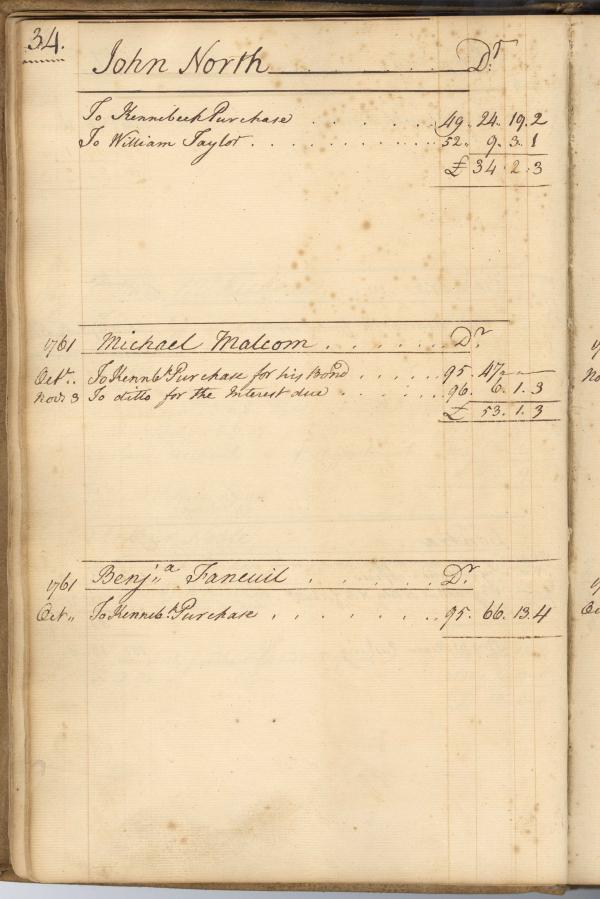 34.
John North . . . . . . . Dr
To Kennebeck Purchase . . . . . . 49. 24. 19. 2
To William Taylor . . . . . . . . . . . . 52. 9. 3. 1
£ 34. 2. 3
1761 Michael Malcom . . . . . . Dr
Octr. To Kenneb.k Purchase for his Bond . . . . . 95. 47. — —
Novr 3 To ditto for the Interest due . . . . . . . 96. 6. 1. 3
£ 53. 1. 3
1761 Benj,,a Faneuil . . . . . Dr.
Oct,, To Kenneb.k Purchase . . . . . . . . 95. 66. 13. 4